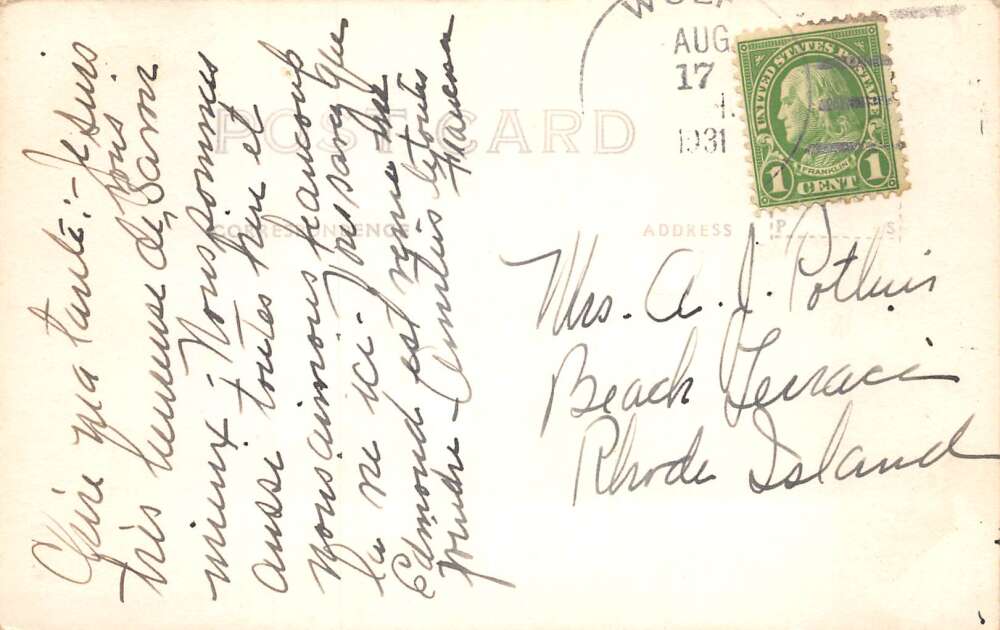 WOLF
AUG
17
1
1931
UNITED STATES POSTAGE
FRANKLIN
1 CENT 1
POST CARD
CORRESPONDENCE
ADDRESS
P S
Chère ma tante :- Je suis
très heureuse de vous savoir
mieux - Nous sommes
ausse toutes bien et
nous aimons beaucoup
la vie ici - Vous savez que
Edmond est venu me
joindre - Amitiés à toutes
Mrs. A. J. Pothier
Beach Terrace
Rhode Island